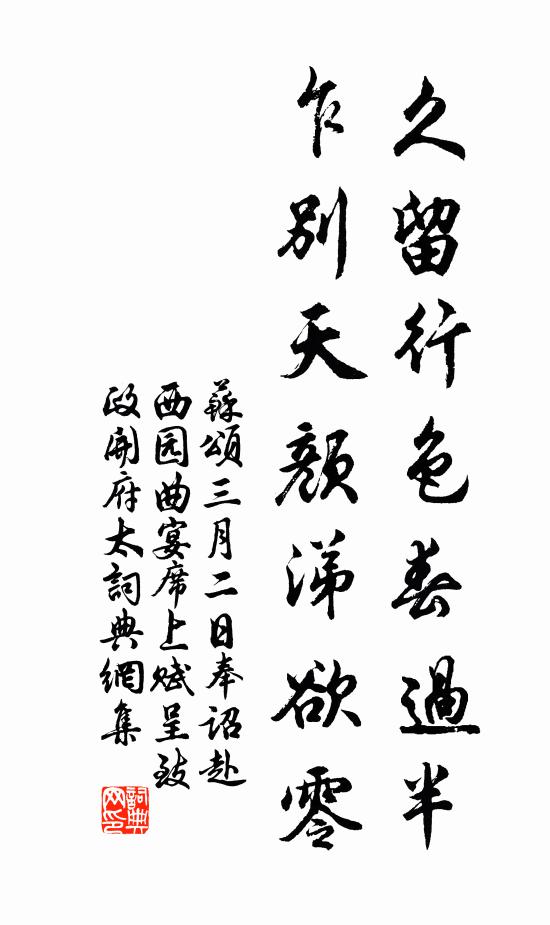 久留行色春過半
乍別天顏涕欲零
蘇頌三月二日奉詔赴
西园曲宴席上賦呈致
政開府太詞典網集
詞典网印